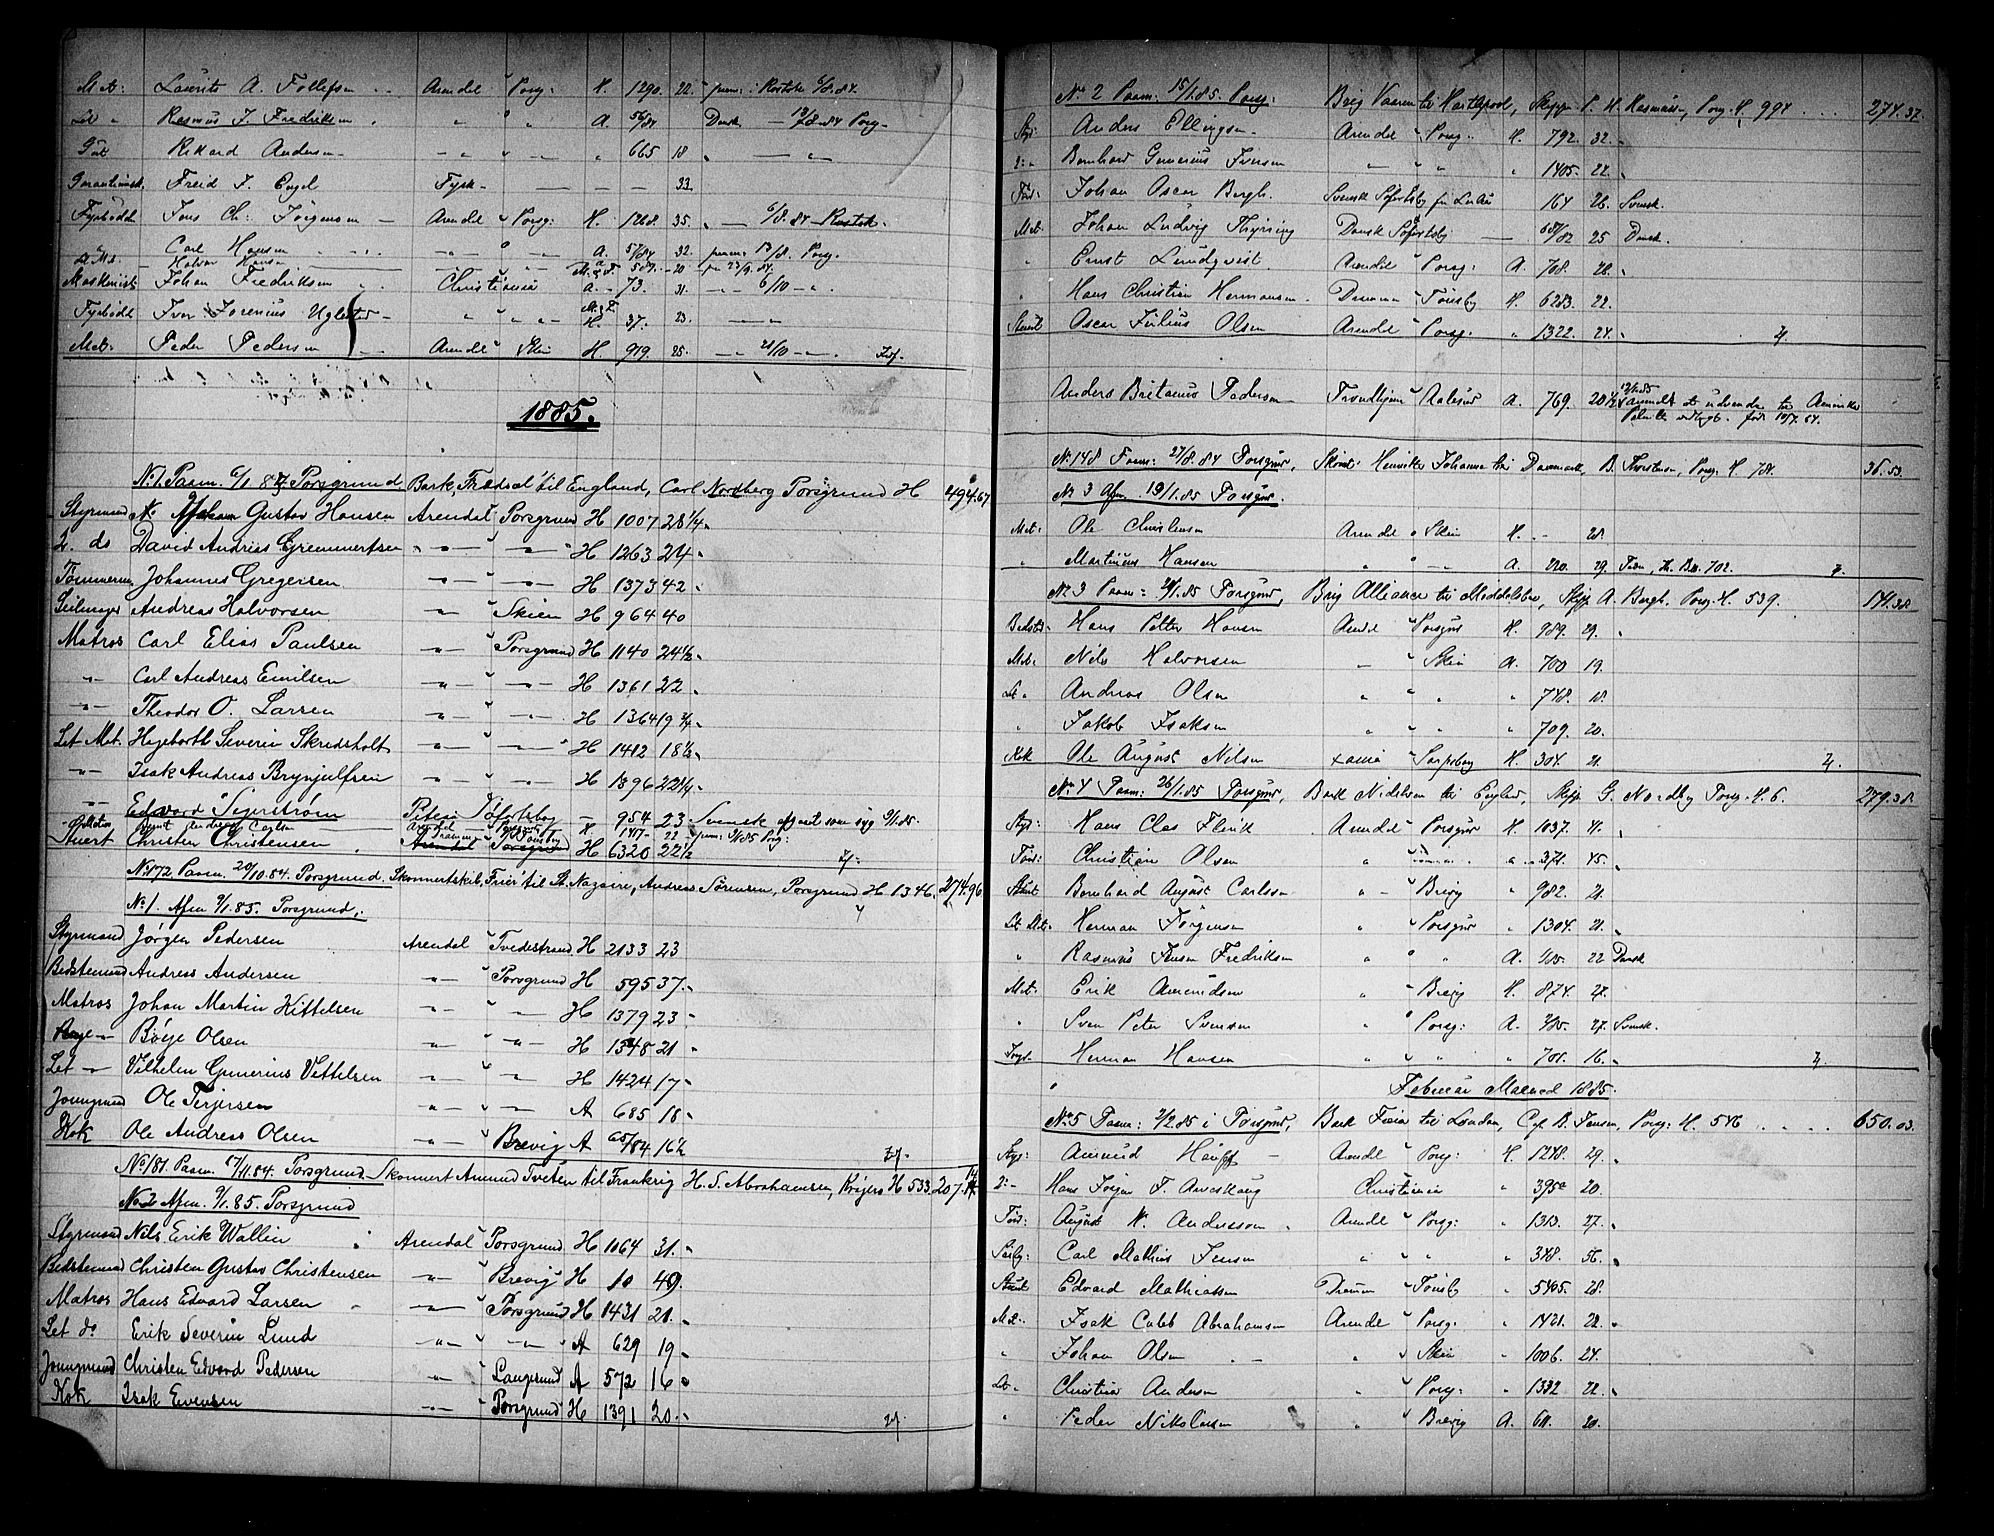 Mat: Laurits A. Follefsen Arendal " Porsg: H. 1290. 22. " perm: i Rostok 6/8.84.
Let " Rasmus J. Fredriksen " " " A. 56/84 Dansk — 13/8.84 Porsg
Gut Rikard Andersen " " 665 18
Freid J. Engel Tysk 33
Fyrbøder Jens Ch: Jörgensen Arendal " Porsg: H. 1268. 35. — 6/8.84 — Rostok.
" Carl Hansen — " A. 57/84 32. perm: 13/8. Porsg.
L. Mt. Halvor Hansen 20
Maskinist Johan Fredriksen Christiania A. — 73. 31. — 6/10 — "
Fyrbødr Iver H. 37. 23. — "
Mat: Peder Pedersen Arendal " Skien H 919. 25.
1885.
No 1. Paam. 6/1 85 Porsgrund. Bark "Fredsæl" til England, Carl Nordberg Porsgrund H 494.67
Styrmand Gustav Hansen Arendal " Porsgrund H 1007 28 1/4
2. do David Andrias Gremmertsen — " — H 1263 24
Tömmerm. Johannes Gregersen — " — H 1373 42
Seilmager Andreas Halvorsen " Skien H 964 40
Matros Carl Elias Paulsen " Porsgrund H 1140 24 1/2
" Carl Andreas Emilsen — " — H 1361 22
" Theodor O. Larsen — " — H 1364 19 3/4
Let Mat. Hagebarth Severin Skredsholt — " — H 1412 18 1/2
" Isak Andreas Brynjulfsen — " — H 1396 22 1/4
" Edvard Segerström 954 23 Svensk afgaaet som syg 9/1.85.
Stuert Christen Christensen Arendal Porsgrund H 6320 22 1/2
No 172 Paam. 20/10.84. Porsgrund. Skonnertskib "Freier" til St. Nazaire, Andreas Sörensen, Porsgrund H 1346. 274.96
No 1. Afm 9/1.85. Porsgrund.
Styrmand Jørgen Pedersen Arendal " Tvedestrand H 2133 23
Bedstemand Andreas Andersen — " Porsgrund H 595 37.
Matros Johan Martin Kittelsen — " — H 1379 23
Böye Olsen — " — H 1348 21
Let — Vilhelm Gunerius Vettelsen — " — H 1424 17
Joungmand Ole Terjersen — " — A 685 18
Kok Ole Andreas Olsen — " Brevig A 65/84 16 1/2
No 181. Paam. 17/11.84. Porsgrund. Skonnert Amund Tveten til Frankrig H. S. Abrahamsen, Kragerø H 533. 207.
No 2 Afm. 9/1.85. Porsgrund
Styrmand Nils Erik Wallin Arendal " Porsgrund H 1064 31.
Bedstemand Christen Gustav Christensen — " Brevig H 10 49.
Matros Hans Edvard Larsen — " Porsgrund H 1431 21.
Let do Erik Severin Lund — " — A 629 19
Joungmand Christen Edvard Pedersen " Langesund A 572 16
Kok Isak Evensen — " Porsgrund H 1391 20.
No 2 Paam: 15/1.85. Porsg: Brig Vaaren til Hartlepool, Skpp P. H. Rasmusen, Porsg. H. 994 274.37.
Styr: Anders Ellingsen Arendal " Porsg: H. 792. 32.
2: " Bernhard Gunerius Iversen — " " 1405. 22.
Töm: Johan Oscar Bergh. Svensk 164 26. Svensk.
Mat: Johan Ludvig Thyrring Dansk 25 Dansk.
" Ernst Lundqvist. Arendal " Porsg: A. 708. 26.
" Hans Christian Hermansen. Drammen " Tönsbg H. 6283. 22.
Stuert Oscar Julius Olsen Arendal " Porsg: " 1322. 24.
Anders Pedersen Trondhjem " Aalesund A. 769. 20 1/2 12/1.85 anmeldt at udvandre til Amerika
No 148 Paam: 27/8.84 Porsgrund, Skönt: Henrikke Johanne til Danmark, B. Thorstensen, Porsg: H. 784. 36.53.
No 3 Afm. 19/1.85 Porsgrund.
Mat: Ole Christensen Arendal " Skien H. — 28.
" Martinius Hansen " — A. 220. 29.
No 3 Paam: 21/1.85 Porsgrund, Brig Alliance til Middelsbro, Skpp A. Bergh. Porsg. H. 539. 141.38.
Bedstm. Hans Petter Hansen Arendal " Porsgrund H. 989. 29.
Mat. Nils Halvorsen — " Skien A. 700 19.
Let " Andreas Olsen " " " 748. 18.
" Jakob Isaksen " " " 709. 20.
Kok Ole August Nilsen Xania " Sarpsborg H. 304. 21.
No 4 Paam: 26/1.85 Porsgrund, Bark Nidelven til England, Skpp G. Nordbg Porsg. H. 6. 279.38.
Styr: Hans Clas Flink Arendal " Porsgrund H. 1037. 41.
Töm: Christian Olsen " 371. 45.
Stuert Bernhard August Carlsen " Brevig " 982. 21.
Let Mat: Herman Jörgensen " Porsgrund " 1304. 21.
" Rasmus Jensen Fredriksen " " A. 22 Dansk
Mat: Erik Amundsen " Brevig H. 874. 27.
" Sven Peter Svensson " Porsg: A. 27. Svensk.
Jongd. Herman Hansen " " " 701. 16.
Februar Maaned 1885.
No 5 Paam: 2/2.85 i Porsgrund, Bark Freia til London, Cpt B. Jensen, Porsg: H. 546 650.03.
Styr: Amund Arendal " Porsg: H. 1248. 29.
2: — Hans Jörgen Christiania " 20.
Töm: August M. Andersson Arendal " Porsg: " 1313. 27.
Seilm: Carl Mathias Jensen " " " 348. 56.
Stuert Edvard Mathiasen Drammen " Tönsbg " 5405. 28.
Mat: Isak Caleb Abrahamsen Arendal " Porsg: " 1421. 22.
" Johan Olsen " Skien " 1006. 24.
Let " Christian Andersen " Porsg: " 1332 22.
" Peder Nikolaisen " Brevig A. 611. 20.